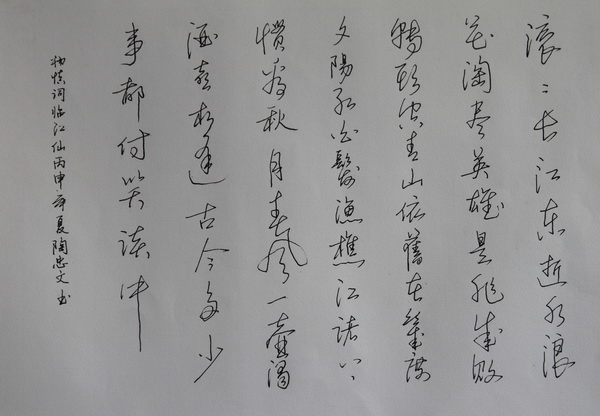 滚〻长江东逝水浪
花淘尽英雄是非成败
轉头空青山依舊在幾度
夕陽红白髮渔樵江渚上
惯看秋月春风一壶濁
酒喜相逢古今多少
事都付笑谈中
杨慎词临江仙丙申年夏陶忠文书